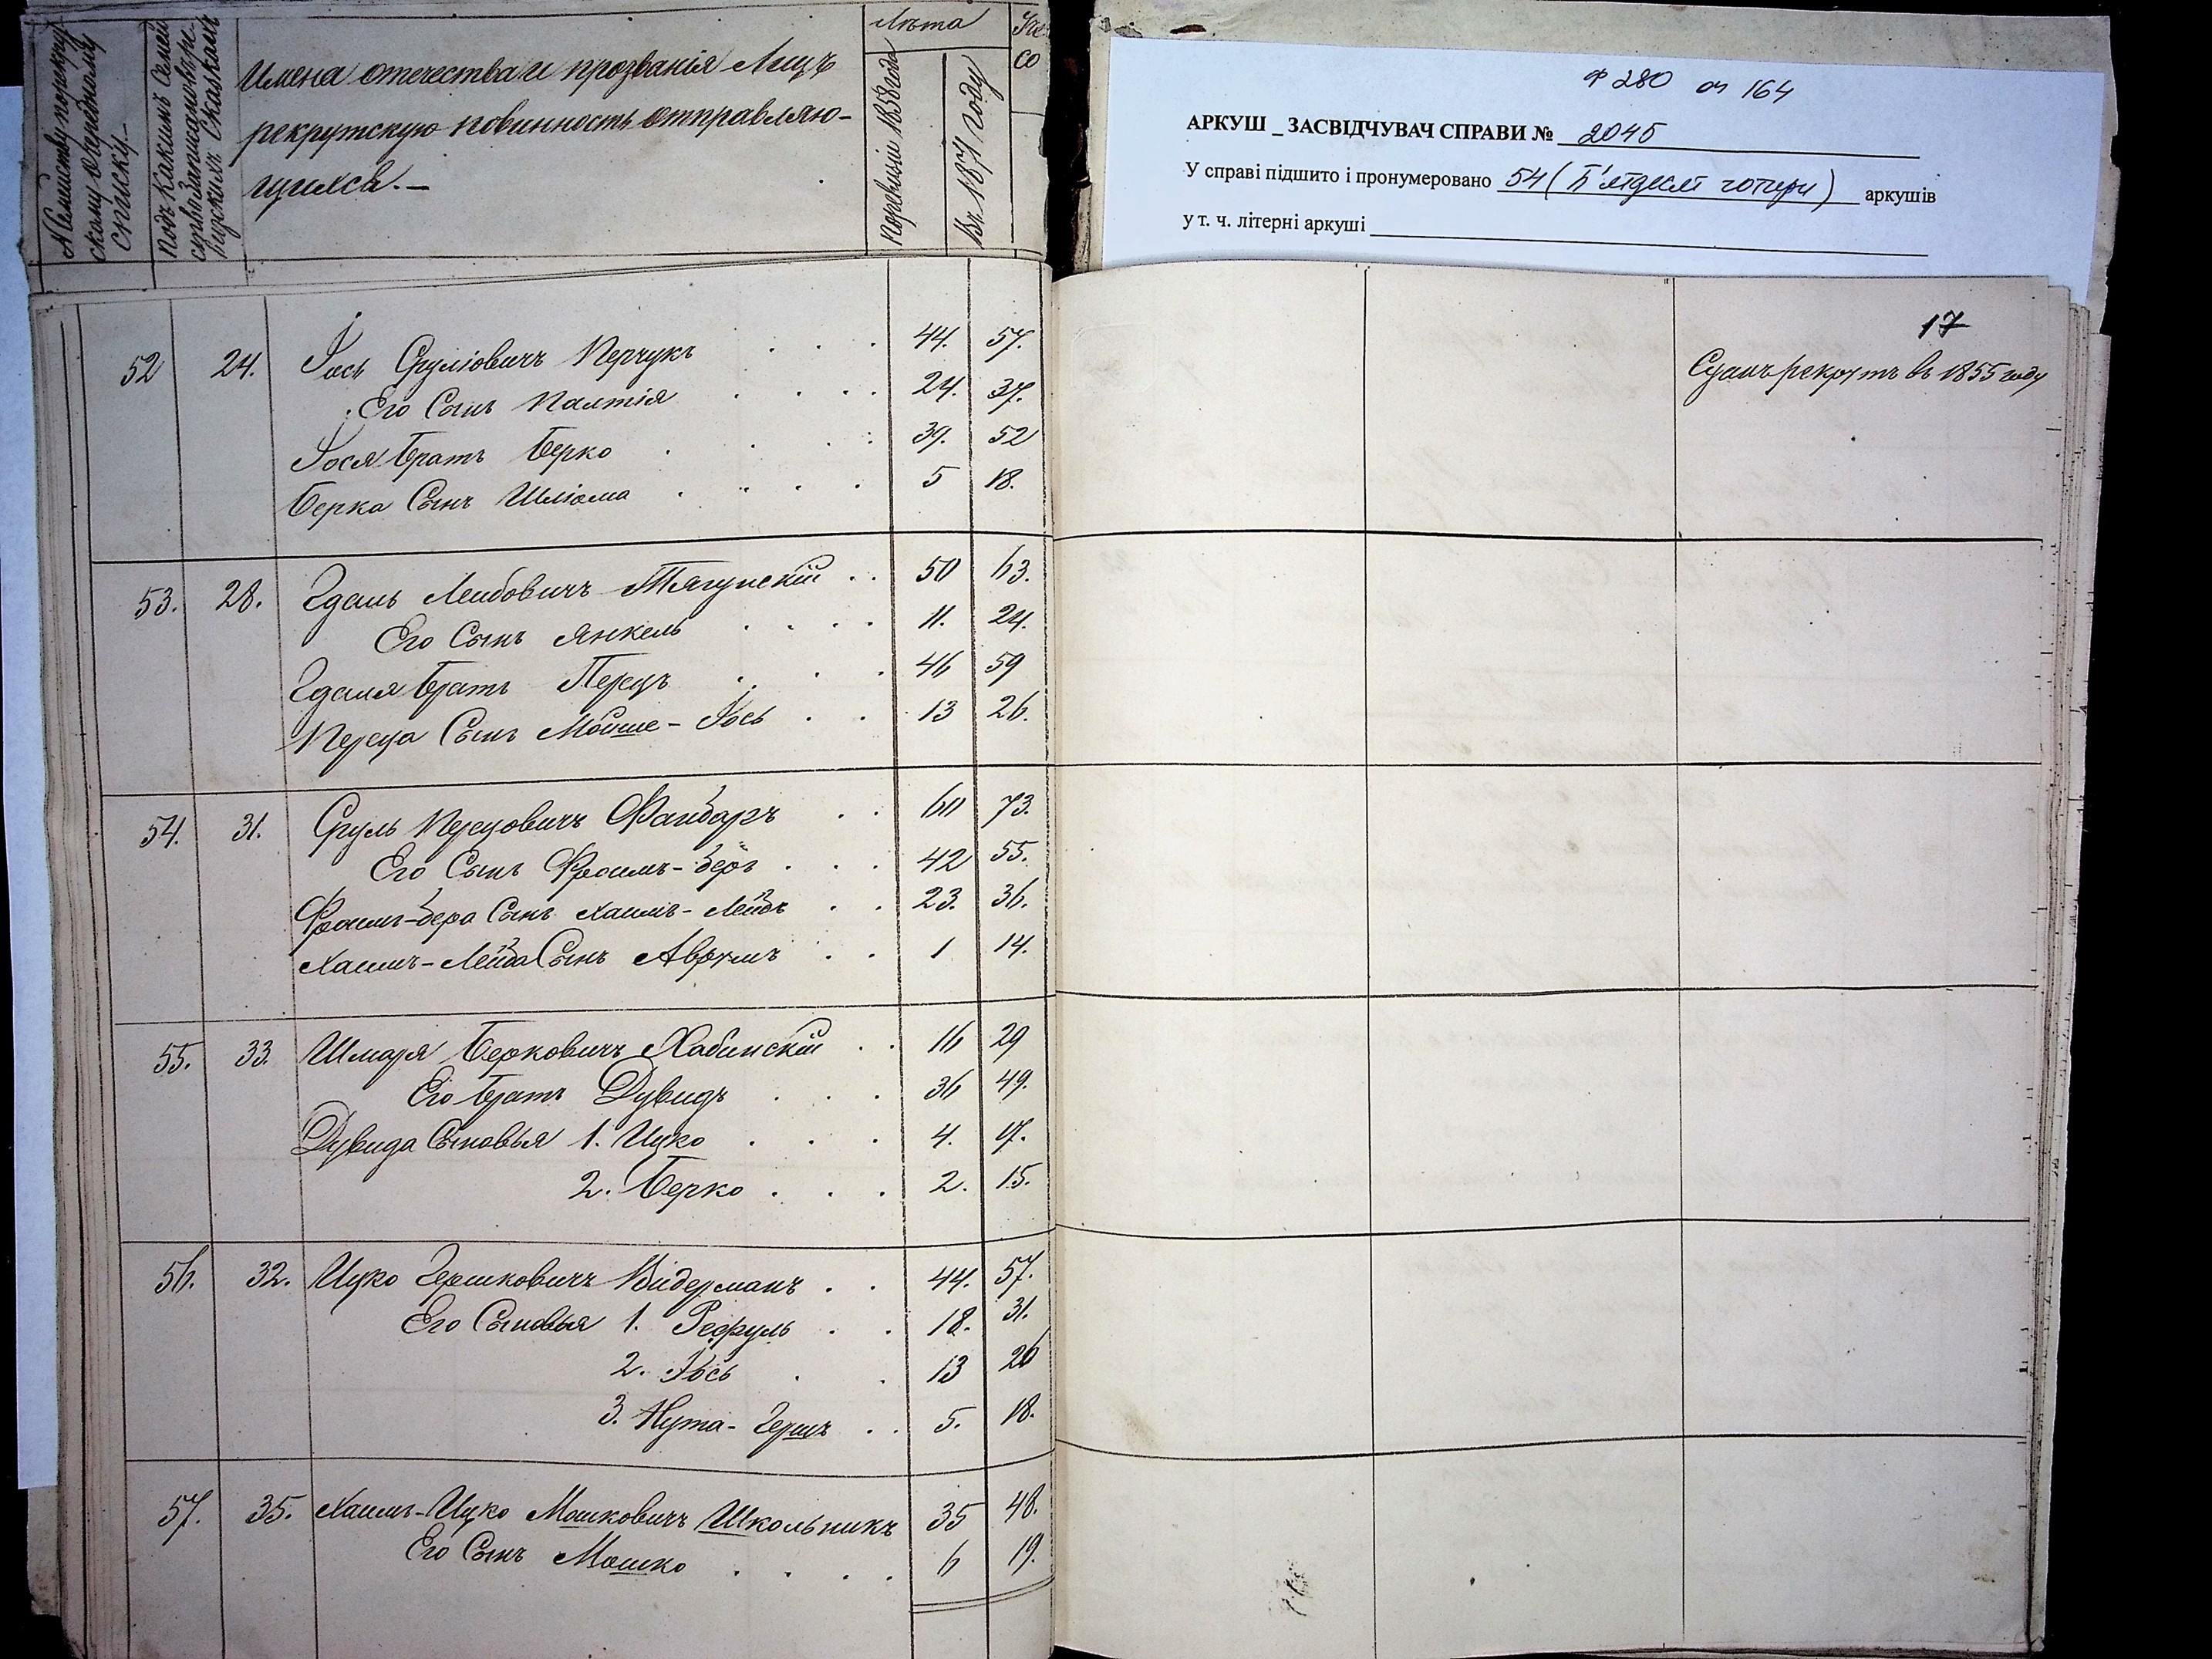 № Семейству по рекрутскому очередному списку.
Подъ какимъ № Семейство записано въ ревизскихъ Сказкахъ
Имена отечества и прозванія Лицъ
рекрутскую повинность отправляю-
щихся.-
Лѣта
По ревизіи 1858 года
Въ 1871 году
ф 280 оп 164
АРКУШ _ ЗАСВІДЧУВАЧ СПРАВИ № 2045
У справі підшито і пронумеровано 54 (П'ятдесят чотири) аркушів
у т. ч. літерні аркуші
17
52 24. Іось Сруліовичъ Перчукъ . . . 44. 57. Сданъ рекрутъ въ 1855 году
Его Сынъ Палтія . . . . 24. 37.
Іося братъ Берко . . . 39. 52
Берка Сынъ Шліома . . . . 5 18.
53. 28. Гдаль Лейбовичъ Тягунскій . . 50 63.
Его Сынъ Янкель . . . . 11. 24.
Гдаля братъ Перецъ . . . 46 59
Переца Сынъ Мойше-Іось . . 13 26.
54. 31. Сруль Перцовичъ Файбаръ . . 60 73.
Его Сынъ Фроимъ-беръ . . . 42 55.
Фроимъ-бера Сынъ Хаимъ-Лейбъ . . 23. 36.
Хаимъ-Лейба Сынъ Аврумъ . . 1 14.
55. 33. Шмаря Берковичъ Хабинскій . . 16 29
Его братъ Дувидъ . . . 36 49.
Дувида Сыновья 1. Ицко . . . 4. 17.
2. Берко . . . 2. 15.
56. 32. Ицко Гершковичъ Видерманъ . . 44. 57.
Его Сыновья 1. Рефуль . . 18. 31.
2. Іось . . 13 26
3. Нута-Гершъ . . 5. 18.
57. 35. Хаимъ-Ицко Мошковичъ Школьникъ 35 48.
Его Сынъ Мошко . . . . 6 19.